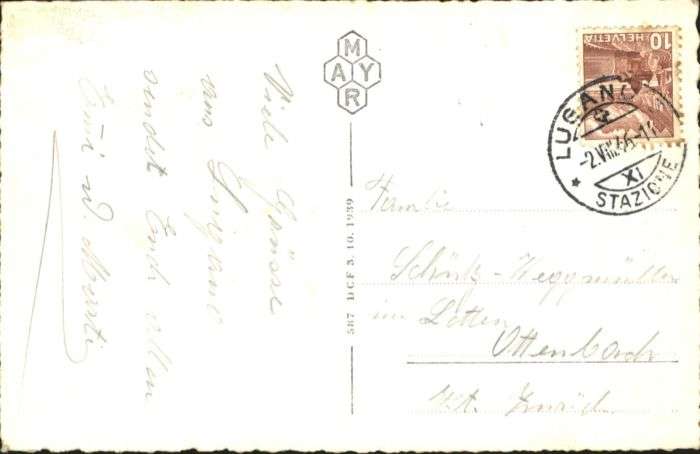 Viele Grüsse
aus Lugano
sendet Euch allen
Emi u. Marti
MAYR
587 DCF 3. 10. 1939
HELVETIA 10
LUGANO
-2.VIII.46-1
XI
STAZIONE
Familie
Schürtz-Weggmüller
im Lotten
Ottenbach
Kt. Zürich